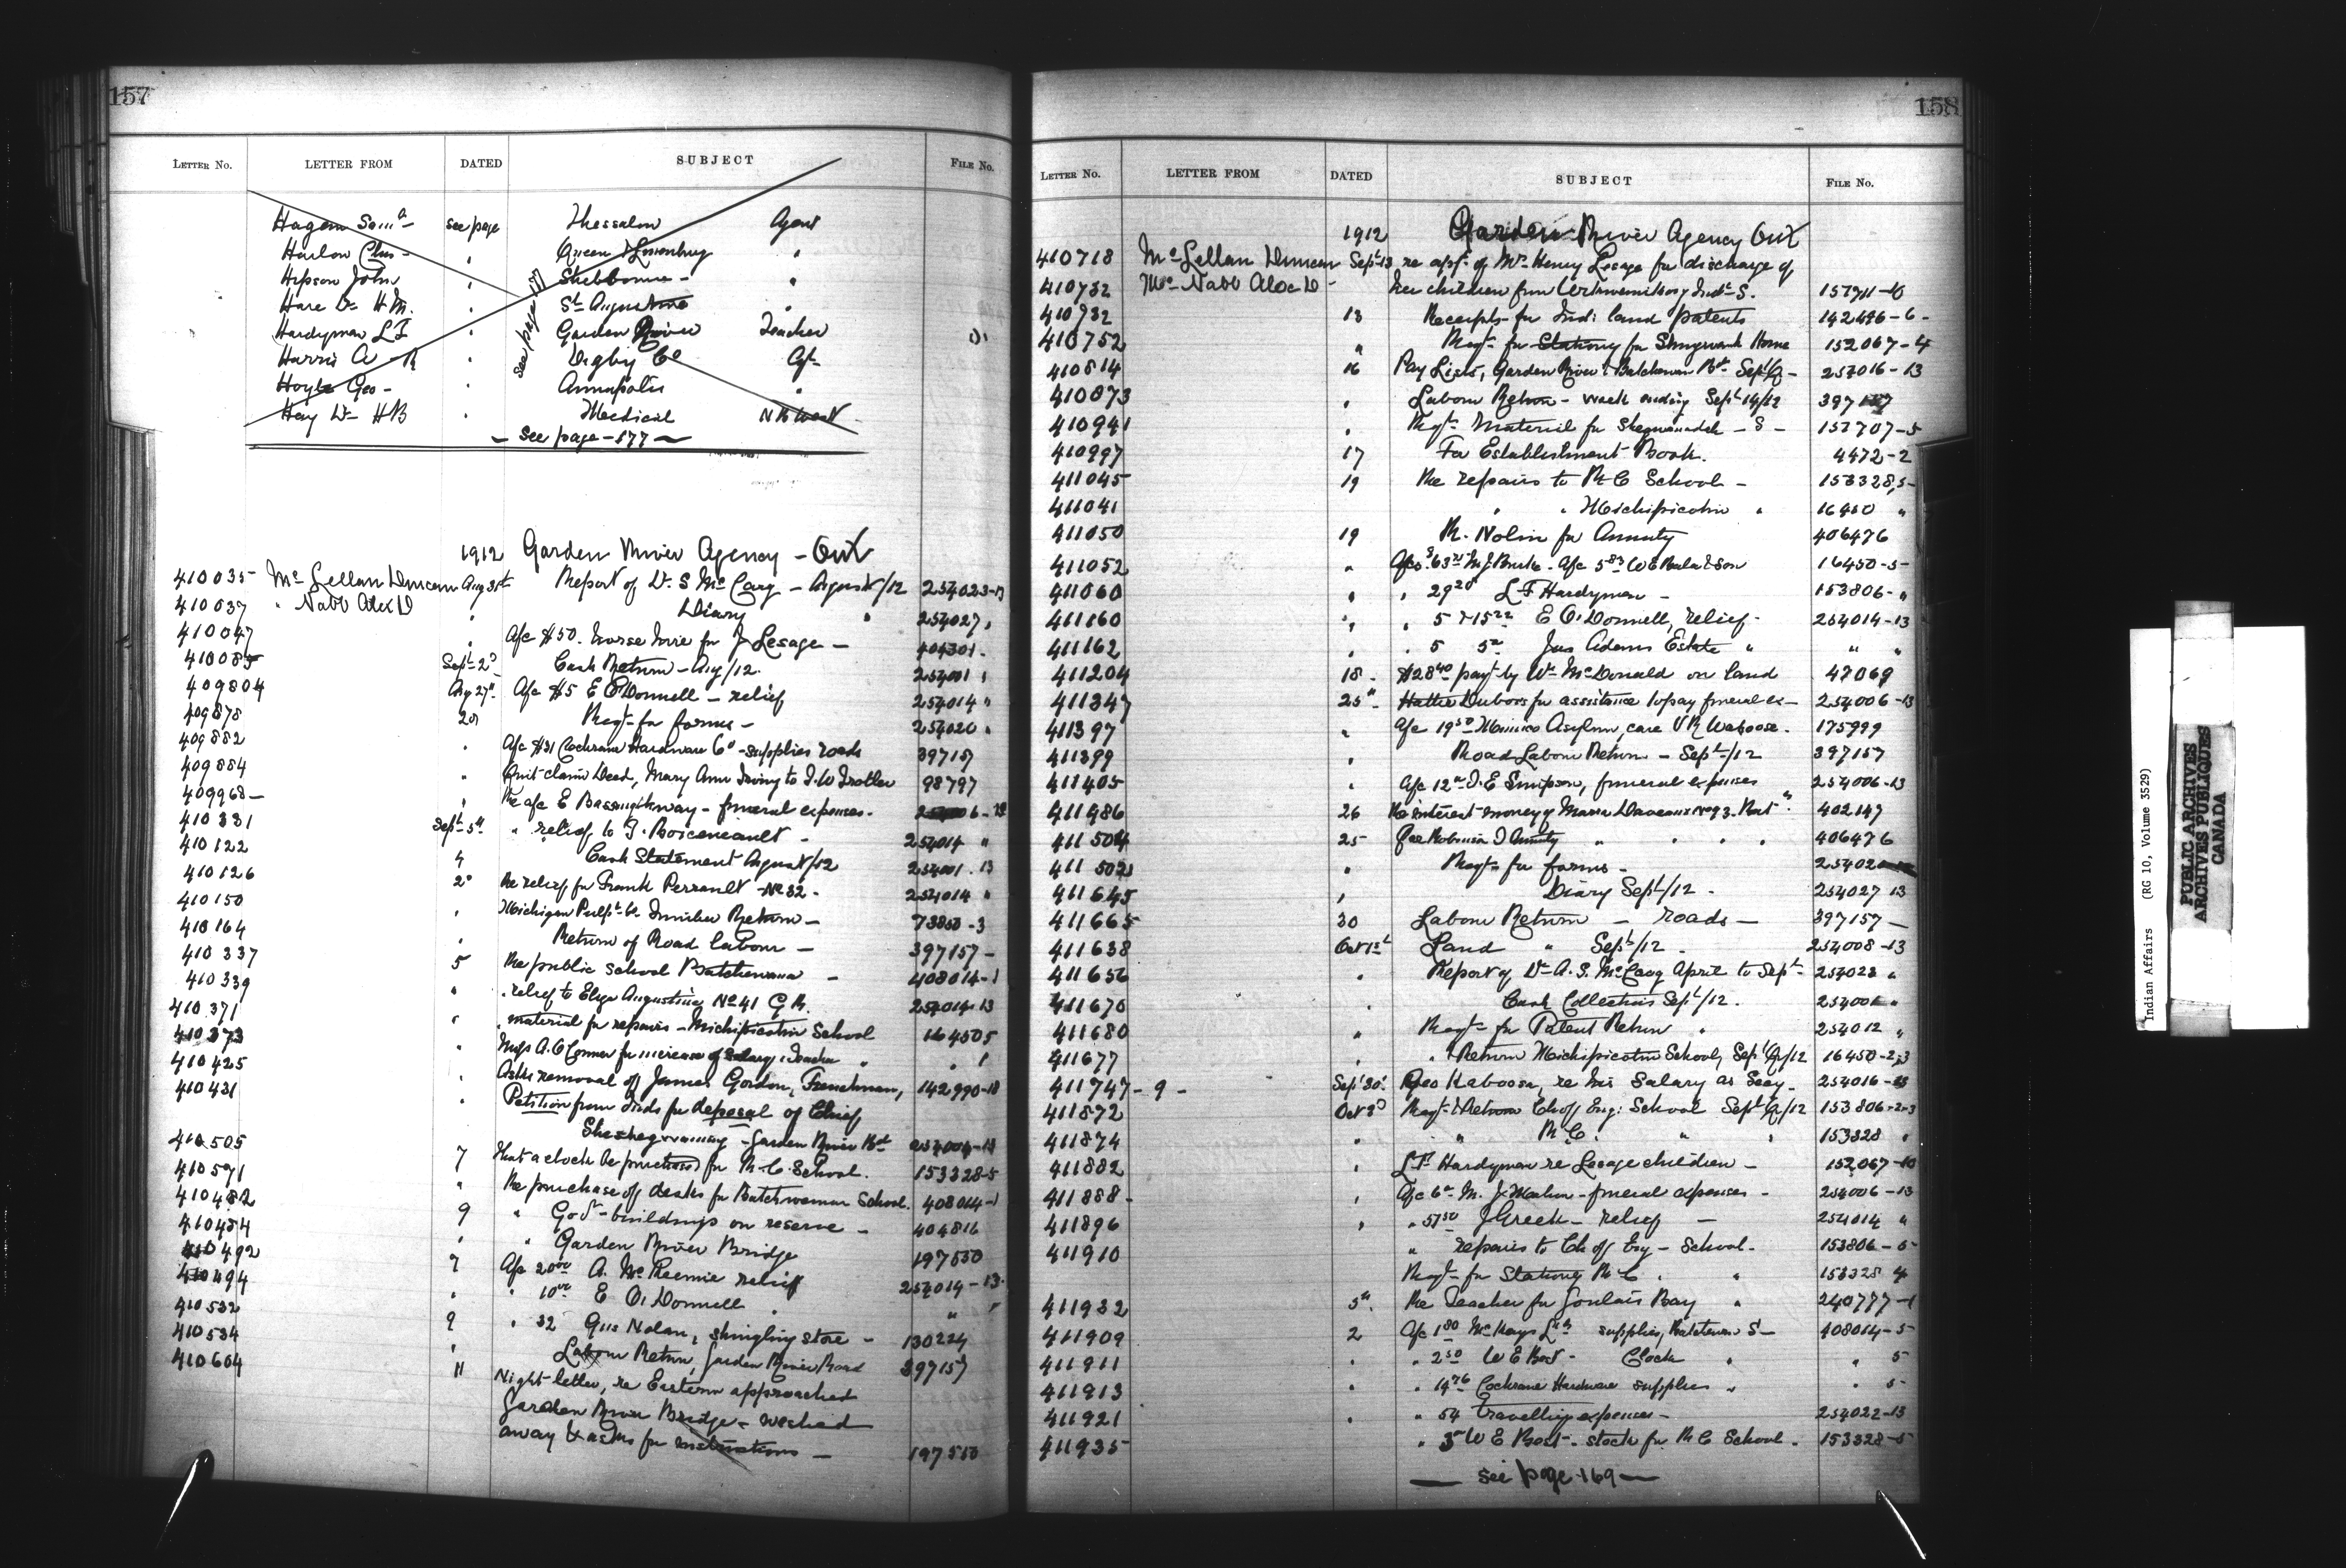 157
LETTER NO. LETTER FROM DATED SUBJECT FILE No.
Hagan Sam see page Thessalon Agent
Harlow Chas - " Queen & Lunenburg "
Hipson John " Shelbourne - "
Hare Dr H M. " St Augustine "
Hardyman L F " Garden River Teacher
Harris A R " Digby Co Agt
Hoyle Geo - " Annapolis "
Hay Dr H B " Medical N B West
see page 177
- See page - 177 -
1912 Garden River Agency - Ont
410035 McLellan Duncan Aug 31st Report of Dr. S McCaig - August/12 254023-13
410037 " Nabb Alex D " Diary " 254027 "
410047 " A/c $50. horse hire for J Lesage - 404301 -
410085 Sept 2d Cash Return - Aug/12. 254001 "
409804 Aug 27th A/c $5 E O'Donnell - relief 254014 "
409878 28 Reqt for forms - 254020 "
409882 " A/c $31 Cochrane Hardware Co - supplies roads 397157
409884 " Quit claim Deed, Mary Ann Irving to J. W Trotter 98797
409968 - " Re a/c E Bassingthway - funeral expenses -
410331 Sept 5th " relief to J. Boiceneault - 254014 "
410122 4 Cash Statement August/12 254001 . 13
410126 2d Re relief for Frank Perrault - No 32 - 254014 "
410150 " Michigan Pulp Co Timber Return - 73850 - 3
410164 " Return of Road labour - 397157 -
410337 5 Re public school Batchewana - 408014-1
410339 " " relief to Eliza Augustine No 41 G R. 254014-13
410371 " " material for repairs - Michipicoten School 16450 5
410373 " Miss A. O'Connor for increase of salary, Teacher " " 1
410425 " Asks removal of James Gordon, Frenchman, 142990-18
410431 " Petition from Inds for deposal of Chief
- Garden River Bd 254004-13
410505 7 That a clock be purchased for R. C. School. 153328-5
410571 " Re purchase of desks for Batchewana School. 408014-1
410482 9 " Govt buildings on reserve - 404816
410484 " " Garden River Bridge 197550
410492 7 A/c 20.00 A. McKecnie relief 254014-13
410494 " " 10.00 E O'Donnell " " "
410532 9 " 32 Gus Nolan, shingling store - 130224
410534 " Labour Return, Garden River Road 397157
410604 11 Night letter, re Eastern approached
Garden River Bridge - washed
away & asks for instructions - 197550
158
LETTER NO. LETTER FROM DATED SUBJECT FILE No.
1912 Garden River Agency Ont
410718 McLellan Duncan Sept 13 re appn of Mrs Henry Lesage for discharge of
410732 McNabb Alex D - her children from Wikwemikong Indl S.
410732 13 Receipts for Indn land patents 142496-6-
410752 " Reqt for Stationery for Shingwauk Home 152067-4
410814 16 Pay Lists, Garden River & Batchewana Bd Sept Q - 254016-13
410873 " Labour Return - week ending Sept 14/12 397157
410941 " Reqt Material for - S - 151707-5
410997 17 For Establishment Book. 4472-2
411045 19 Re repairs to R C School - 153328,5-
411041 " " Michipicoten "
411050 19 R. Nolin for Annuity 406476
411052 " 16450-5-
411060 " " 29.20 L F Hardyman - 153806- "
411160 " " 5 & 15.22 E O'Donnell, relief - 254014-13
411162 " " 5 Jas Adams Estate " " "
411204 18 - $28.40 payt by Wm McDonald on land 47069
411347 25th Hattie Dubois for assistance to pay funeral ex - 254006-13
411397 " A/c 19.50 Mimico Asylum, care V R Waboose. 175999
411399 " Road Labour Return - Sept/12 397157
411405 " A/c 12.00 J. E Simpson, funeral expenses 254006-13
411486 26 Re interest money of No 93. Bat " 402147
411504 25 Robinson T Annuity " " " " 406476
" Reqt for forms -
411645 " Diary Sept/12 - 254027 13
411665 30 Labour Return - roads - 397157 -
411638 Oct 1st Land " Sept/12 - 254008-13
411656 " Report of Dr A. S. McCaig April to Sept 254023 "
411670 " Cash Collections Sept/12. 254001 "
411680 " Reqt for Patent Return " 254012 "
411677 " " Return Michipicoten School, Sept Q/12 16450-2,3
411747 - 9 - Sept 30 Geo Kaboosa, re his salary as Secy. 254016-13
411872 Oct 3d Reqt & Return Ch of Eng: School Sept Q/12 153806-2-3
411874 " " R. C. " " 153328 "
411882 " L F Hardyman re Lesage children - 152067-10
411888 - " A/c 6.00 M. J Meehan - funeral expenses - 254006-13
411896 " " 51.50 J Greek - relief - 254014 "
411910 " repairs to Ch of Eng - School. 153806-5
Reqt for Stationery R C " " 153328 4
411932 5th Re Teacher for Goulais Bay " 240777-1
411909 2 A/c 1.80 McKays Ltd supplies, Batchewana S - 408014-5
411911 " " 2.50 W E Bost - Clock " " 5
411913 " " 14.76 Cochrane Hardware supplies " " 5-
411921 " " 54 Travelling expenses - 254022-13
411935 " 3 W E Bost - stock for R C School. 153328-5
- see page 169 -
Indian Affairs (RG 10, Volume 3529)
PUBLIC ARCHIVES
ARCHIVES PUBLIQUES
CANADA